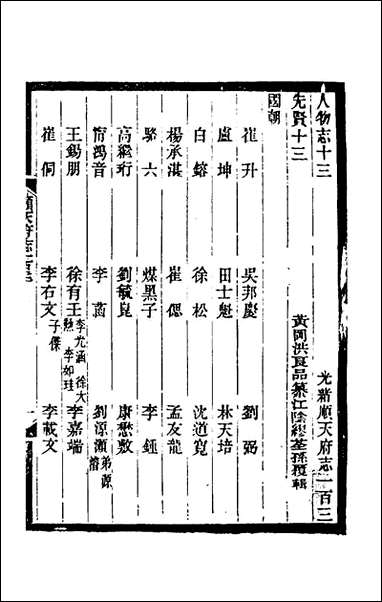 人物志十三　光緒順天府志一百三
先賢十三　黃岡洪良品纂江陰繆荃孫覆輯
國朝
崔升　吳邦慶　劉弼
盧坤　田士魁　林天培
白鎔　徐松　沈道寬
楊承湛　崔偲　孟友龍
駱六　煤黑子　李鍾
高繼珩　劉毓崑　康懋敷
甯鴻音　李菡　劉源灝弟源濬
王錫朋　徐有壬李尤涵 徐大 李如珪　李嘉端
崔侗　李右文子傑　李載文